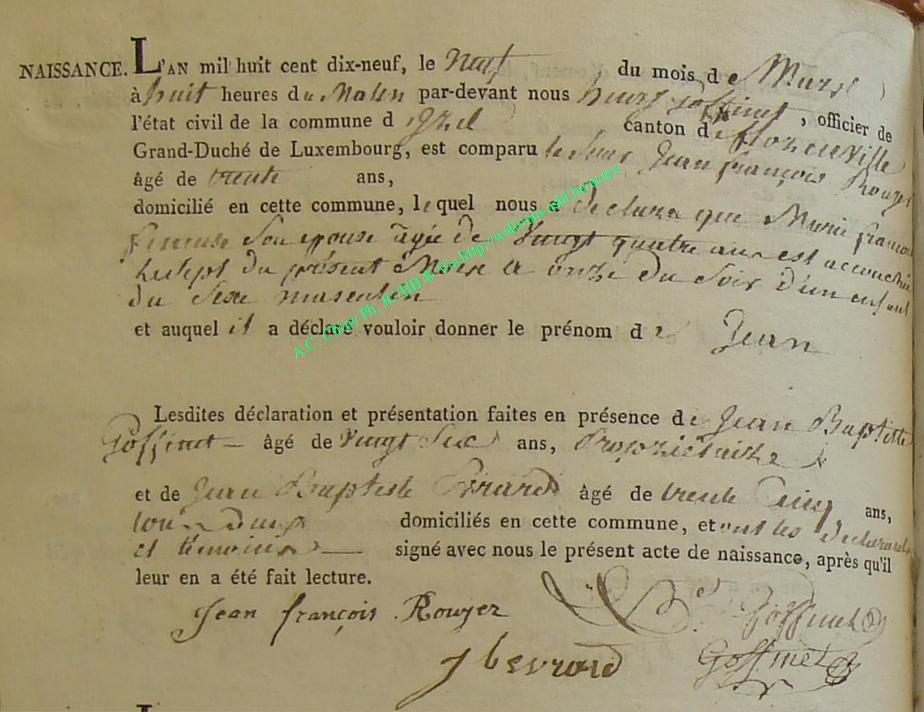 NAISSANCE. L'AN mil huit cent dix-neuf, le Neuf du mois de Mars
à huit heures du Matin par-devant nous henry Goffinet, officier de
l'état civil de la commune d'izel canton de florenville
Grand-Duché de Luxembourg, est comparu le Sieur Jean françois Rouyer
âgé de trente ans,
domicilié en cette commune, lequel nous a declaré que Marie françoise
son epouse âgée de Vingt quatre ans est accouchée
le sept du présent Mois a onze du Soir d'un enfant
du Sexe masculin
et auquel il a déclaré vouloir donner le prénom de Jean
Lesdites déclaration et présentation faites en présence de Jean Baptiste
Goffinet âgé de Vingt Six ans, Propriétaire
et de Jean Baptiste Evrard âgé de trente Cinq ans,
tous deux domiciliés en cette commune, et ont les declarant
et témoins signé avec nous le présent acte de naissance, après qu'il
leur en a été fait lecture.
Jean françois Rouyer
Goffinet
J b evrard Goffinet
A.C. Chiny Ph. R. HB & Via http://wallonia-mbl.be/actes